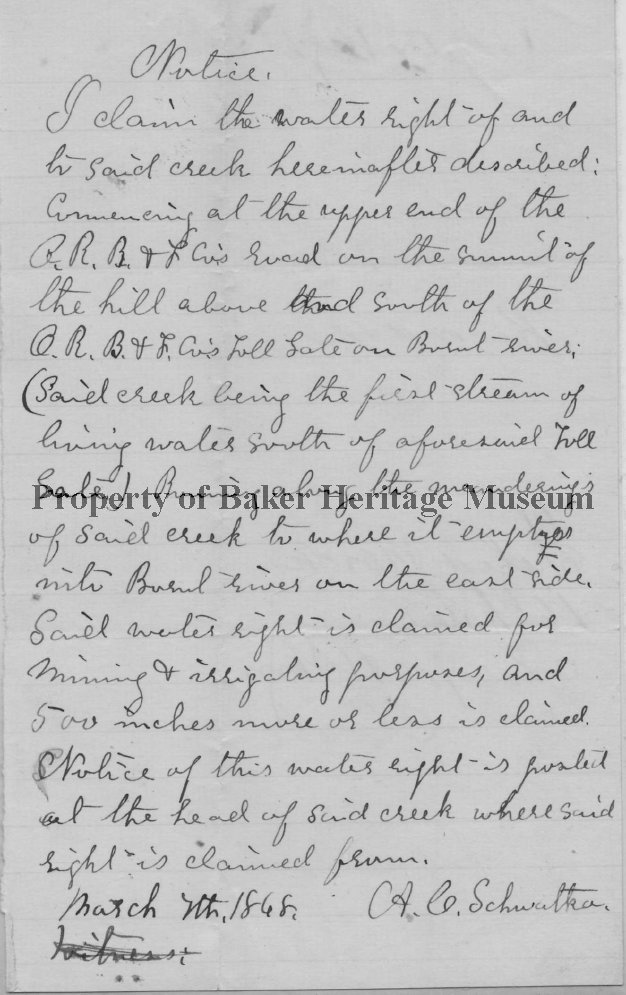 Notice.
I claim the water right of and
to said creek hereinafter described:
Commencing at the upper end of the
O. R. B. & F. Co's road on the summit of
the hill above and south of the
O. R. B. & F. Co's Toll Gate on Burnt river;
(Said creek being the first stream of
living water south of aforesaid Toll
Gate) Running along the meanderings
Property of Baker Heritage Museum
of said creek to where it empties
into Burnt river on the east side.
Said water right is claimed for
mining & irrigating purposes, and
500 inches more or less is claimed.
Notice of this water right is posted
at the head of said creek where said
right is claimed from.
March 7th, 1868. A. C. Schwatka.
Witness: